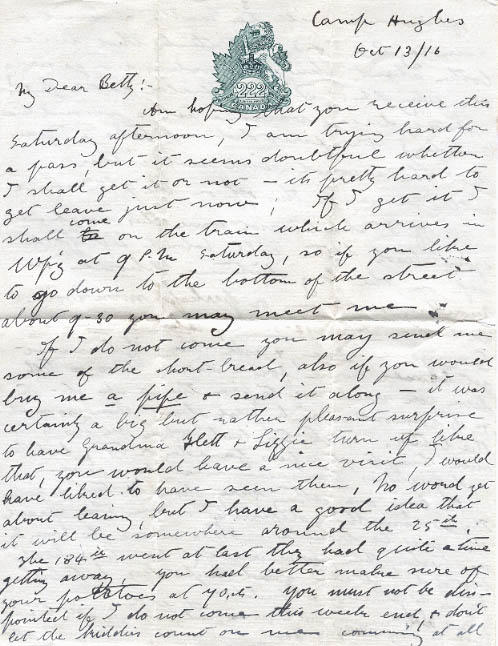 Camp Hughes
Oct 13/16
222
CANADA
My Dear Betty:-
Am hoping that you receive this
Saturday afternoon, I am trying hard for
a pass, but it seems doubtful whether
I shall get it or not - its pretty hard to
get leave just now; If I get it I
shall come on the train which arrives in
Wp'g at 9 P.M Saturday, so if you like
to go down to the bottom of the street
about 9-30 you may meet me
If I do not come you may send me
some of the short-bread, also if you would
buy me a pipe & send it along - it was
certainly a big but rather pleasant surprise
to have Grandma Flett & Lizzie turn up like
that, you would have a nice visit, I would
have liked to have seen them, No word yet
about leaving, but I have a good idea that
it will be somewhere around the 25th.
The 184th went at last they had quite a time
getting away, you had better make sure of
your potatoes at once. You must not be dis-
pointed if I do not come this week end, & don't
let the kiddies count on me comming at all